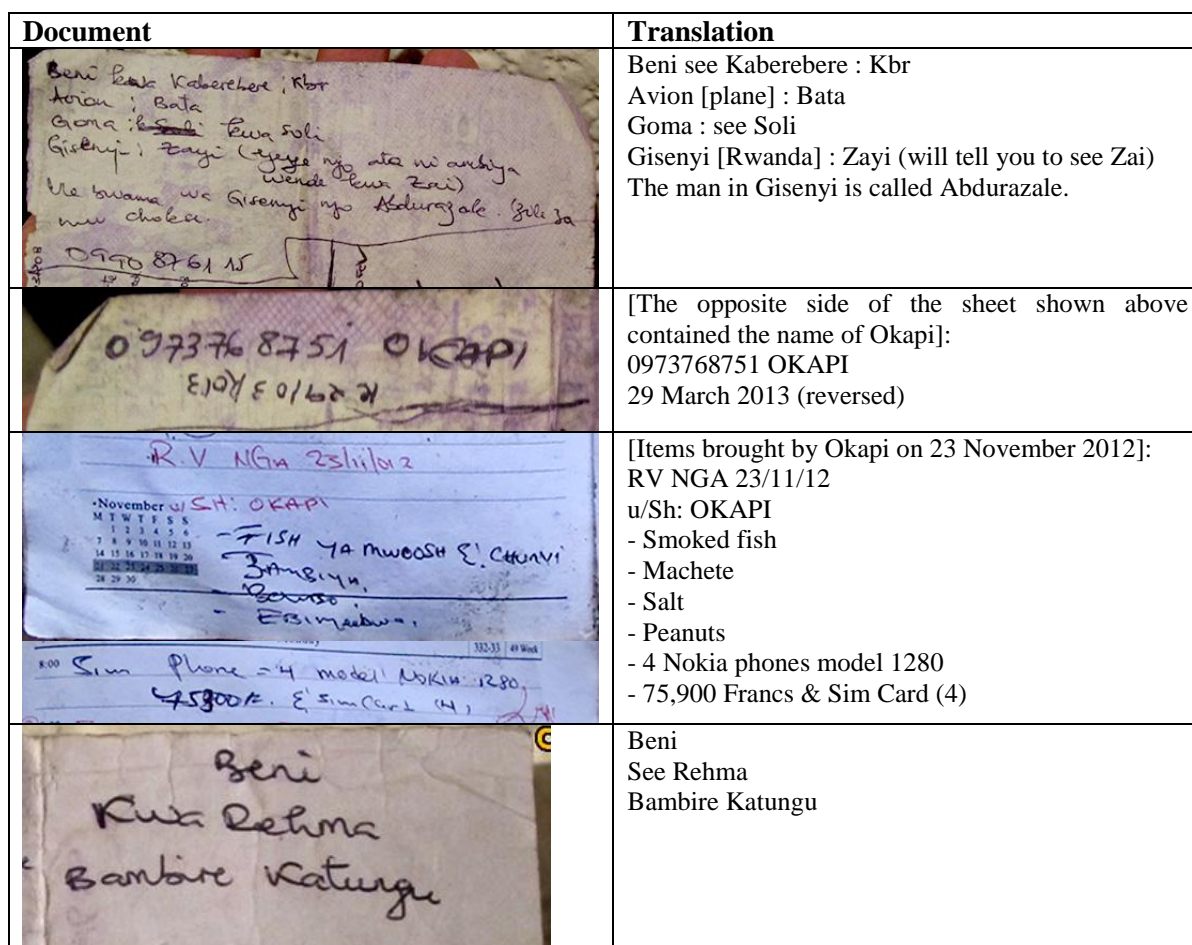 Document
Translation
Beni kwa Kaberebere ; Kbr
Avion ; Bata
Goma : kwa Soli
Gisenyi ; Zayi (yeye njo ata ni ambiya
wende kwa Zai)
bwama wa Gisenyi njo Abdurazale.
mu choka.
0990 8761 15
Beni see Kaberebere : Kbr
Avion [plane] : Bata
Goma : see Soli
Gisenyi [Rwanda] : Zayi (will tell you to see Zai)
The man in Gisenyi is called Abdurazale.
0973768751 OKAPI
29/03/2013
[The opposite side of the sheet shown above
contained the name of Okapi]:
0973768751 OKAPI
29 March 2013 (reversed)
R.V NGA 23/11/012
November u/SH: OKAPI
M T W T F S S
1 2 3 4 5 6
7 8 9 10 11 12 13
14 15 16 17 18 19 20
21 22 23 24 25 26 27
28 29 30
- FISH YA MWOOSH & CHUNVI
332-33 49 Week
8:00 Sim Phone = 4 model NOKIA 1280,
75900F. & Sim Card (4)
[Items brought by Okapi on 23 November 2012]:
RV NGA 23/11/12
u/Sh: OKAPI
- Smoked fish
- Machete
- Salt
- Peanuts
- 4 Nokia phones model 1280
- 75,900 Francs & Sim Card (4)
Beni
Kwa Rehma
Bambire Katungu
Beni
See Rehma
Bambire Katungu